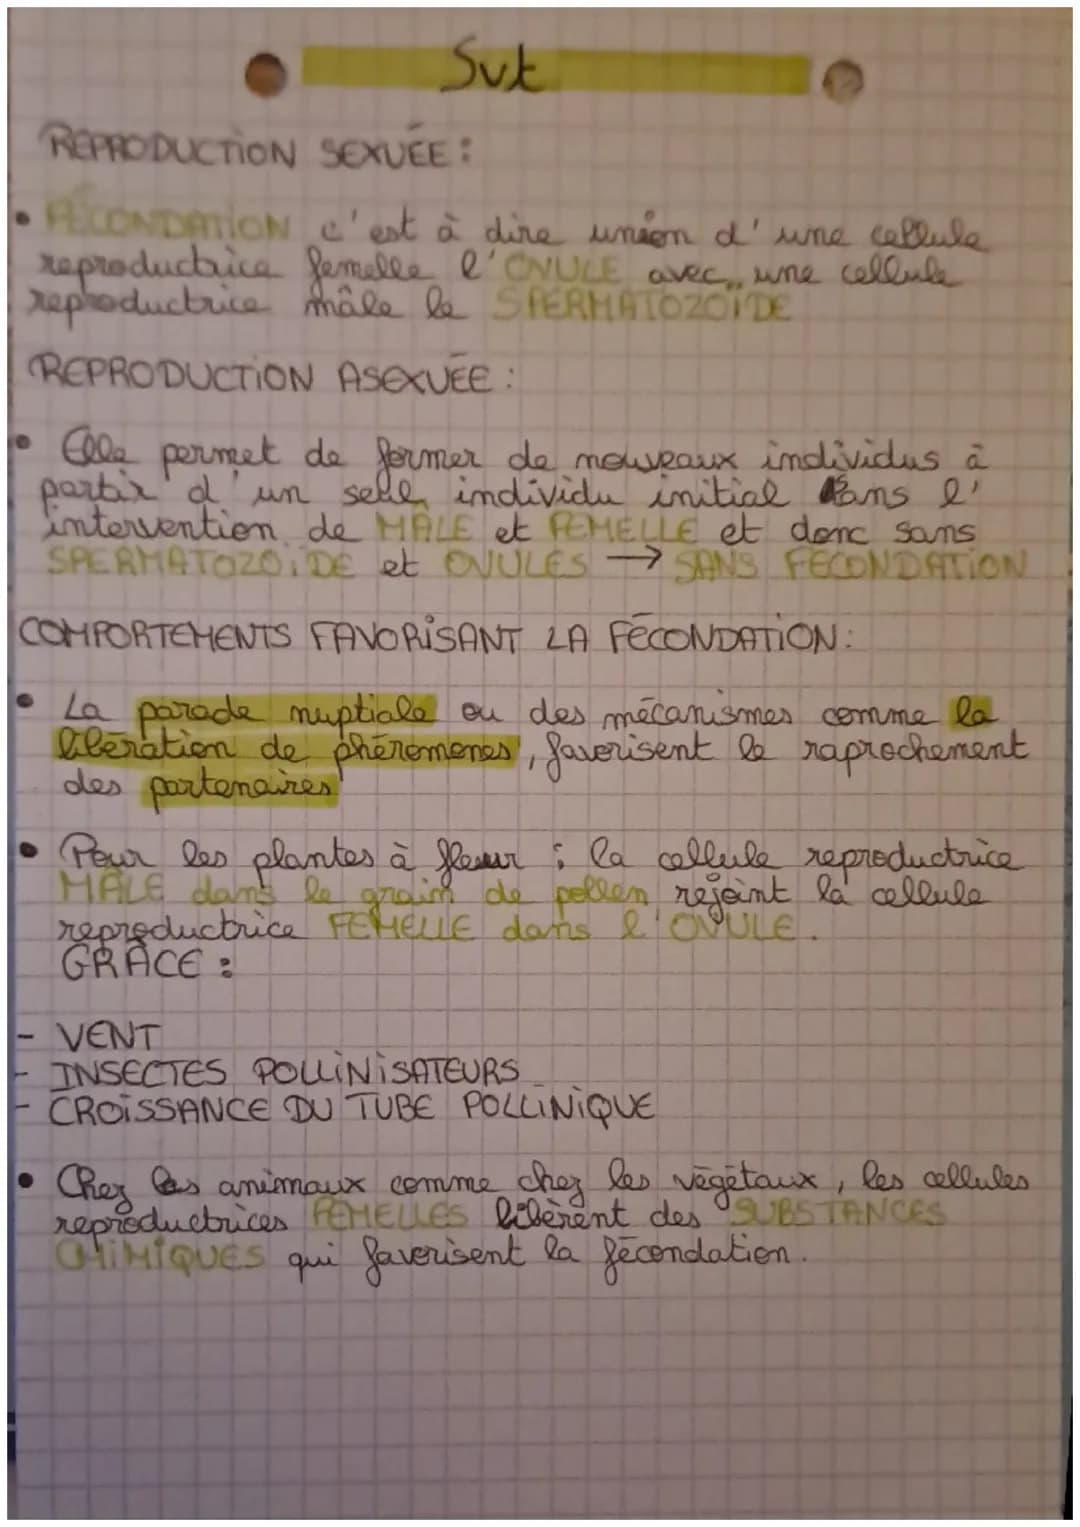 Svt
REPRODUCTION SEXUÉE :
• FÉCONDATION c'est à dire union d'une cellule
reproductrice femelle l'OVULE avec une cellule
reproductrice mâle le SPERMATOZOÏDE
REPRODUCTION ASEXUÉE :
• Elle permet de former de nouveaux individus à
partir d'un seul individu initial sans l'
intervention de MÂLE et FEMELLE et donc sans
SPERMATOZOÏDE et OVULES → SANS FÉCONDATION
COMPORTEMENTS FAVORISANT LA FÉCONDATION :
• La parade nuptiale ou des mécanismes comme la
libération de phéromones, favorisent le raprochement
des partenaires
• Pour les plantes à fleur : la cellule reproductrice
MÂLE dans le grain de pollen rejoint la cellule
reproductrice FEMELLE dans l'OVULE.
GRÂCE :
- VENT
- INSECTES POLLINISATEURS
- CROISSANCE DU TUBE POLLINIQUE
• Chez les animaux comme chez les végétaux, les cellules
reproductrices FEMELLES libèrent des SUBSTANCES
CHIMIQUES qui favorisent la fécondation.